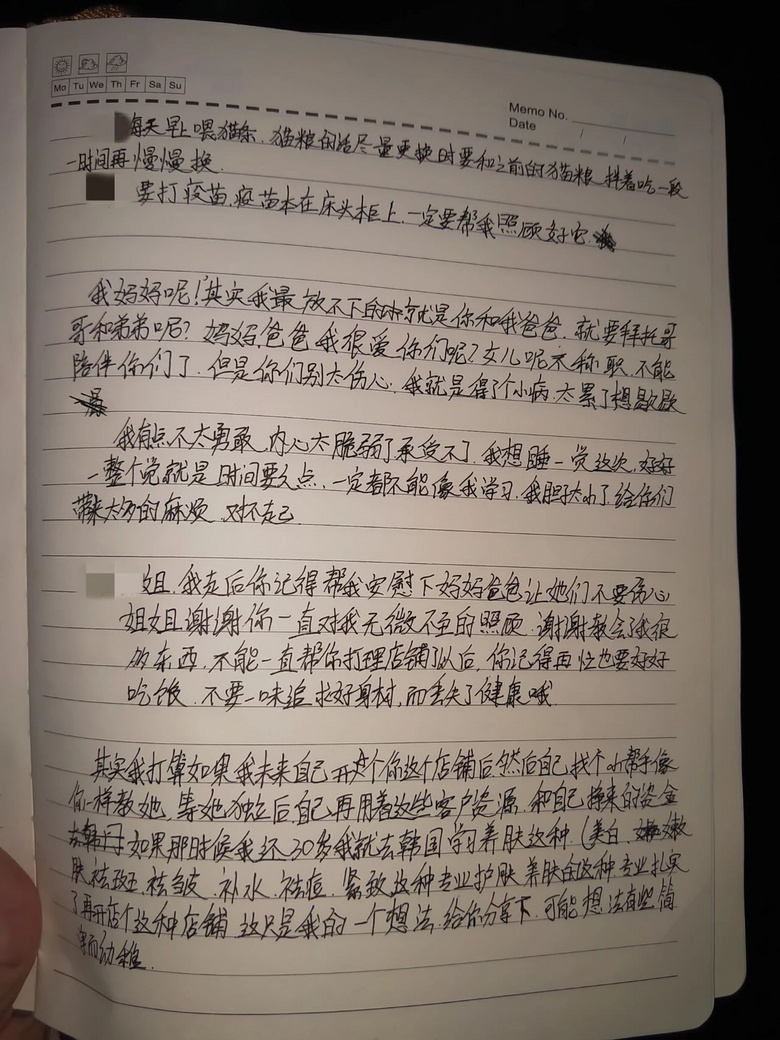 Mo Tu We Th Fr Sa Su
Memo No.
Date / /
每天早上喂猫条.猫粮的话尽量更换时要和之前的猫粮拌着吃一段
一时间再慢慢换.
要打疫苗.疫苗本在床头柜上.一定要帮我照顾好它.
我妈妈呢!其实我最放不下的就是你和我爸爸.就要拜托哥
哥和弟弟呢?妈妈爸爸我很爱你们呢?女儿呢不称职.不能
陪伴你们了.但是你们别太伤心.我就是得了个小病.太累了想歇歇
我有点不太勇敢.内心太脆弱了承受不了.我想睡一觉这次.好好
一整个觉就是时间要久点.一定都不能像我学习.我胆子太小了给你们
带来太多的麻烦.对不起
姐.我走后你记得帮我安慰下妈妈爸爸让她们不要伤心
姐姐谢谢你一直对我无微不至的照顾.谢谢教会了我很
多东西.不能一直帮你打理店铺了以后.你记得再忙也要好好
吃饭.不要一味追求好身材,而丢失了健康哦.
其实我打算如果我未来自己开个你这个店铺后.然后自己找个小帮手像
你一样教她.等她独立后自己再用着这些客户资源.和自己挣来的资金
如果那时候我还30多我就去韩国学习养肤这种.(美白.嫩
肤.祛斑.祛皱.补水.祛痘.紧致这种专业护肤养肤的这种专业扎实
了再开店个这种店铺 这只是我的一个想法.给你分享下.可能想法有些简
单而幼稚.